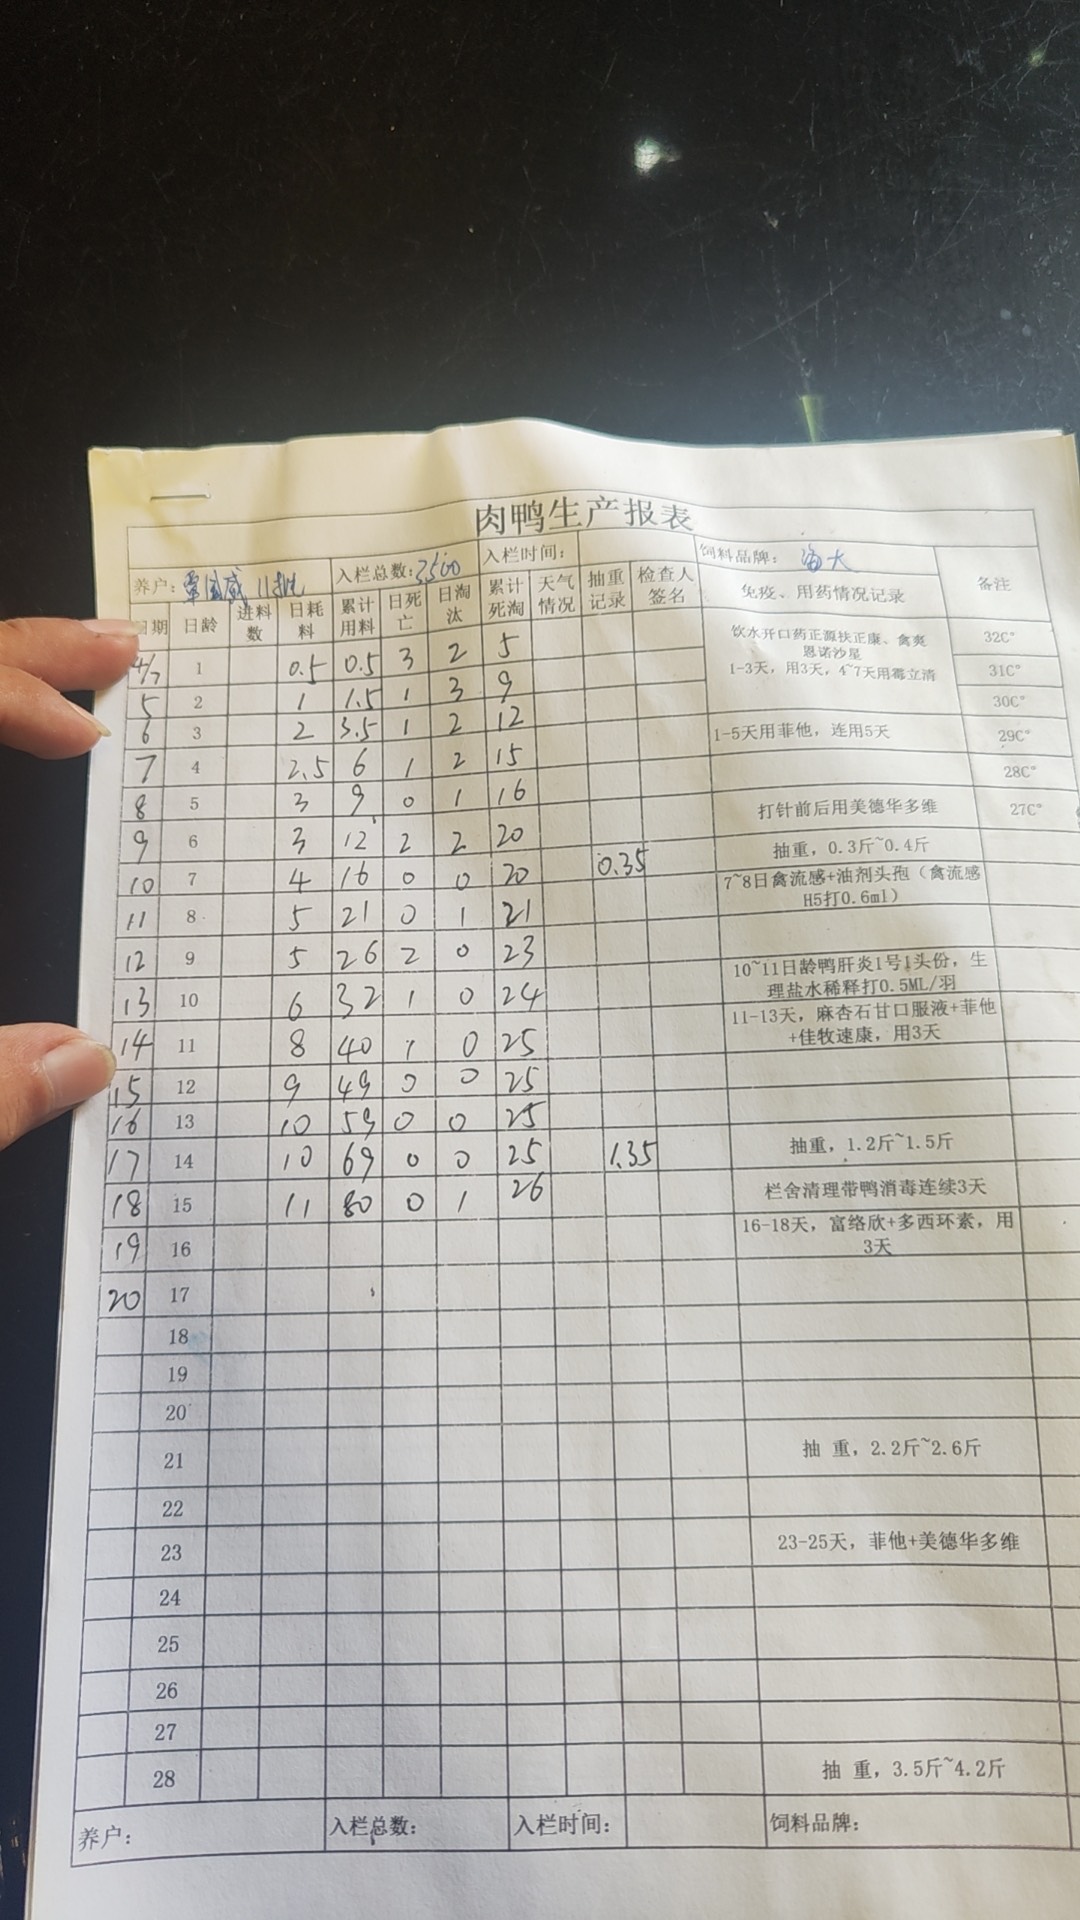 肉鸭生产报表
养户：覃国威 11批 入栏总数：3500 入栏时间： 饲料品牌：海大 备注
日期 日龄 进料数 日耗料 累计用料 日死亡 日淘汰 累计死淘 天气情况 抽重记录 检查人签名 免疫、用药情况记录
4/7 1 0.5 0.5 3 2 5 饮水开口药正源扶正康、禽爽 32C°
恩诺沙星
5 2 1 1.5 1 3 9 1-3天，用3天，4~7天用霉立清 31C°
30C°
6 3 2 3.5 1 2 12 1-5天用菲他，连用5天 29C°
7 4 2.5 6 1 2 15 28C°
8 5 3 9 0 1 16 打针前后用美德华多维 27C°
9 6 3 12 2 2 20 抽重，0.3斤~0.4斤
10 7 4 16 0 0 20 0.35 7~8日禽流感+油剂头孢（禽流感
H5打0.6ml）
11 8 5 21 0 1 21
12 9 5 26 2 0 23 10~11日龄鸭肝炎1号1头份，生
理盐水稀释打0.5ML/羽
13 10 6 32 1 0 24 11-13天，麻杏石甘口服液+菲他
+佳牧速康，用3天
14 11 8 40 1 0 25
15 12 9 49 0 0 25
16 13 10 59 0 0 25
17 14 10 69 0 0 25 1.35 抽重，1.2斤~1.5斤
18 15 11 80 0 1 26 栏舍清理带鸭消毒连续3天
19 16 16-18天，富络欣+多西环素，用
3天
20 17
18
19
20
21 抽 重，2.2斤~2.6斤
22
23 23-25天，菲他+美德华多维
24
25
26
27
28 抽 重，3.5斤~4.2斤
养户： 入栏总数： 入栏时间： 饲料品牌：